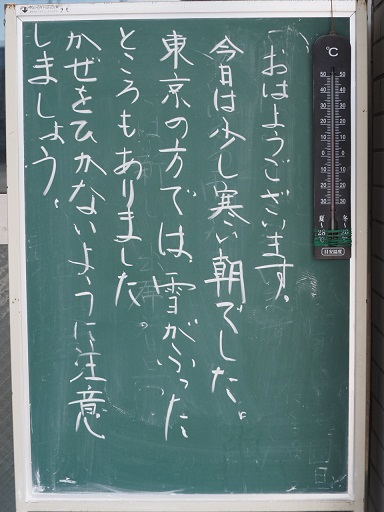 おはようございます。
今日は少し寒い朝でした。
東京の方では、雪がふった
ところもありました。
かぜをひかないように注意
しましょう。
℃
50 50
40 40
30 30
20 20
10 10
0 0
10 10
20 20
30 30
夏 冬
28℃ 20℃